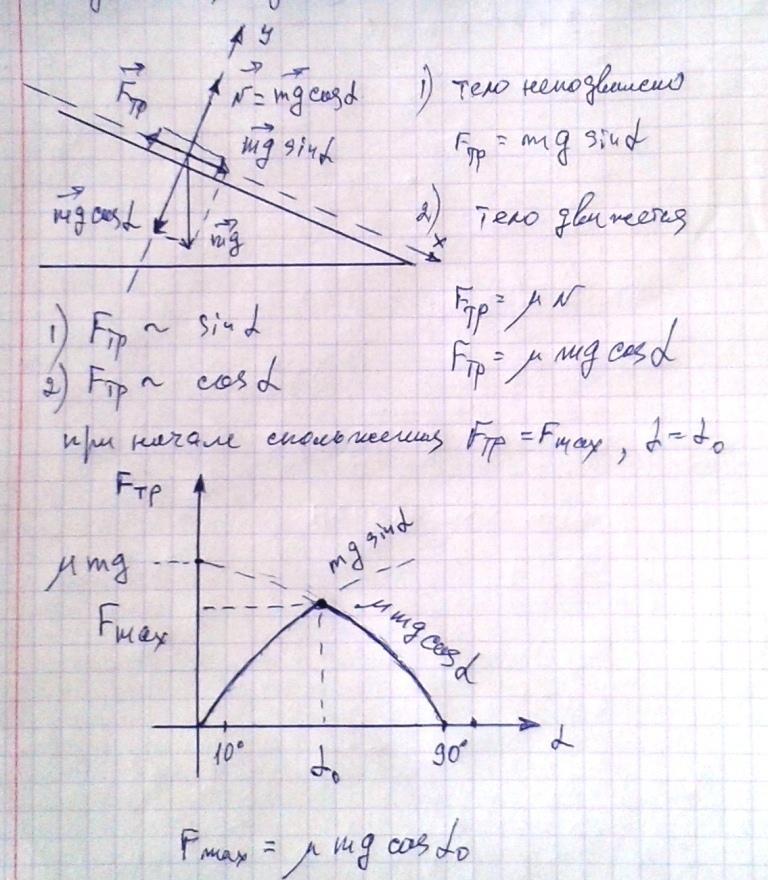 y
F⃗тр
N⃗ = m⃗g cosα
m⃗g sinα
m⃗g cosα
m⃗g
x
1) тело неподвижно
Fтр = mg sinα
2) тело движется
Fтр = μN
Fтр = μ mg cosα
1) Fтр ~ sinα
2) Fтр ~ cosα
при начале скольжения Fтр = Fmax, α = α₀
Fтр
mg sinα
μ mg
Fmax
μ mg cosα
10° α₀ 90° α
Fmax = μ mg cos α₀